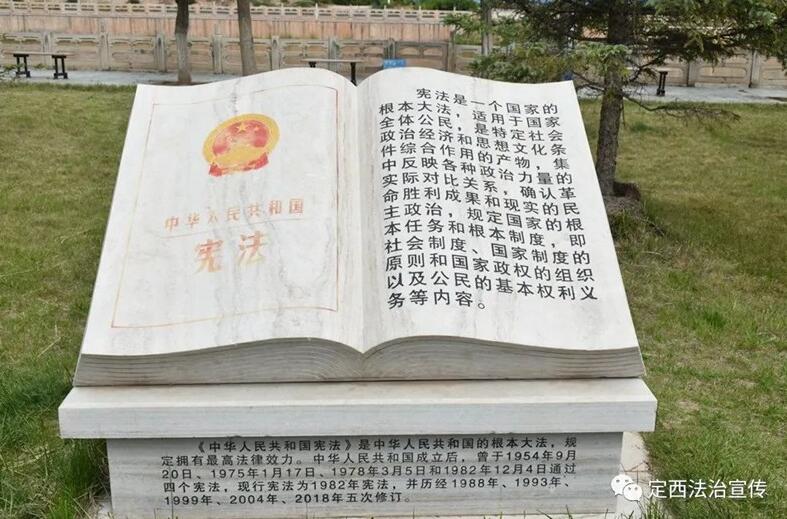 中华人民共和国
宪法
宪法是一个国家的
根本大法，适用于国家
全体公民，是特定社会
政治经济和思想文化条
件综合作用的产物，集
中反映各种政治力量的
实际对比关系，确认革
命胜利成果和现实的民
主政治，规定国家的根
本任务和根本制度，即
社会制度、国家制度的
原则和国家政权的组织
以及公民的基本权利义
务等内容。
《中华人民共和国宪法》是中华人民共和国的根本大法，规
定拥有最高法律效力。中华人民共和国成立后，曾于1954年9月
20日、1975年1月17日、1978年3月5日和1982年12月4日通过
四个宪法，现行宪法为1982年宪法，并历经1988年、1993年、
1999年、2004年、2018年五次修订。
定西法治宣传